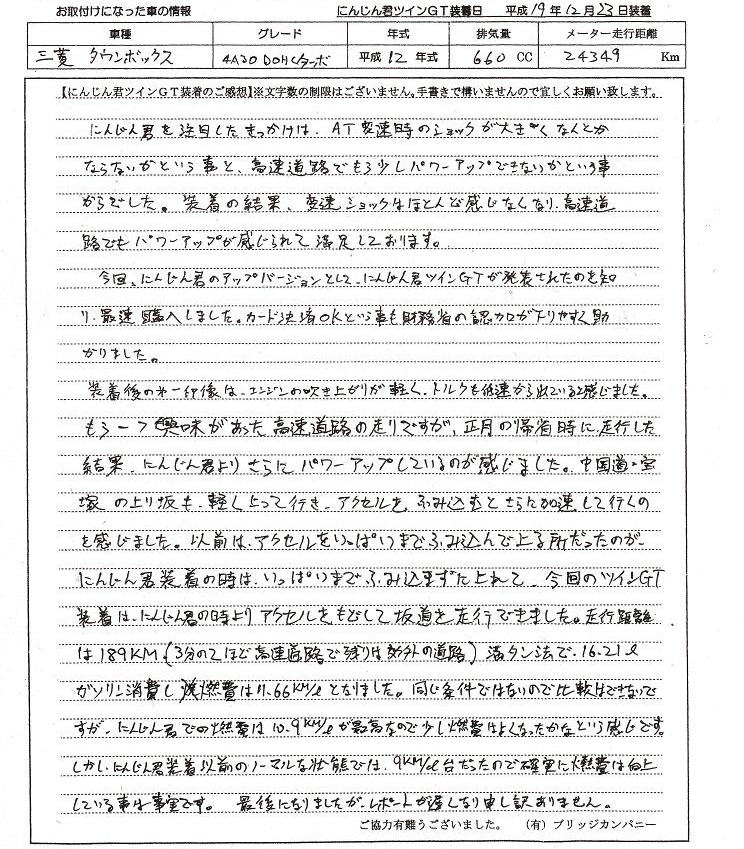 お取付けになった車の情報 にんじん君ツインGT装着日 平成19年12月23日装着
車種 グレード 年式 排気量 メーター走行距離
三菱 タウンボックス 4A30 DOHCターボ 平成12年式 660 CC 24349 Km
【にんじん君ツインGT装着のご感想】※文字数の制限はございません。手書きで構いませんので宜しくお願い致します。
にんじん君を注目したきっかけは、AT変速時のショックが大きくなんとか
ならないかという事と、高速道路でもう少しパワーアップできないかという事
からでした。装着の結果、変速ショックはほとんど感じなくなり、高速道
路でもパワーアップが感じられて満足しております。
今回、にんじん君のアップバージョンとして、にんじん君ツインGTが発表されたのを知
り、最速購入しました。カード決済OKという事も財務省の認可が下りやすく助
かりました。
装着後の第一印像は、エンジンの吹き上がりが軽く、トルクも低速から出ていると感じました。
もう一つ興味があった高速道路の走りですが、正月の帰省時に走行した
結果、にんじん君よりさらにパワーアップしているのが感じました。中国道・宝
塚の上り坂も、軽く上って行き、アクセルを、ふみ込むとさらに加速して行くの
を感じました。以前は、アクセルをいっぱいまでふみ込んで上る所だったのが、
にんじん君装着の時は、いっぱいまでふみ込まずに上れて、今回のツインGT
装着は、にんじん君の時よりアクセルをもどして坂道を走行できました。走行距離
は189KM（3分の2ほど高速道路で残りは郊外の道路）満タン法で、16.21ℓ
ガソリン消費し燃費は11.66KM/ℓとなりました。同じ条件ではないので比較はできないで
すが、にんじん君での燃費は10.9KM/ℓが最高なので少し燃費はよくなったかなという感じです。
しかし、にんじん君装着以前のノーマルな状態では、9KM/ℓ台だったので確実に燃費は向上
している事は事実です。 最後になりましたが、レポートが遅くなり申し訳ありません。
ご協力有難うございました。 （有）ブリッジカンパニー